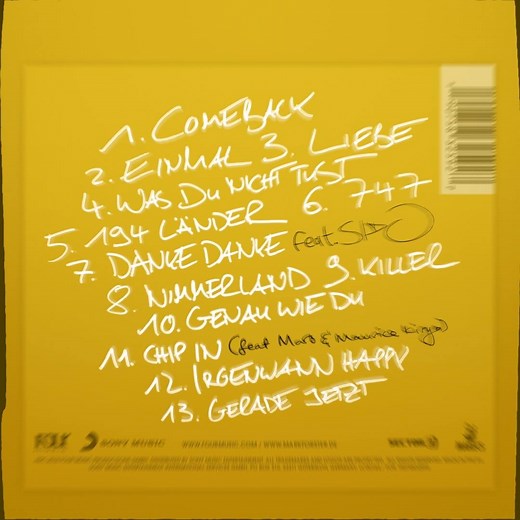 1. COMEBACK
2. EINMAL 3. LIEBE
4. WAS DU NICHT TUST
5. 194 LÄNDER 6. 747
7. DANKE DANKE feat. SIDO
8. NIMMERLAND 9. KILLER
10. GENAU WIE DU
11. CHIP IN (feat Maro &
12. IRGENWANN HAPPY
13. GERADE JETZT
SONY MUSIC